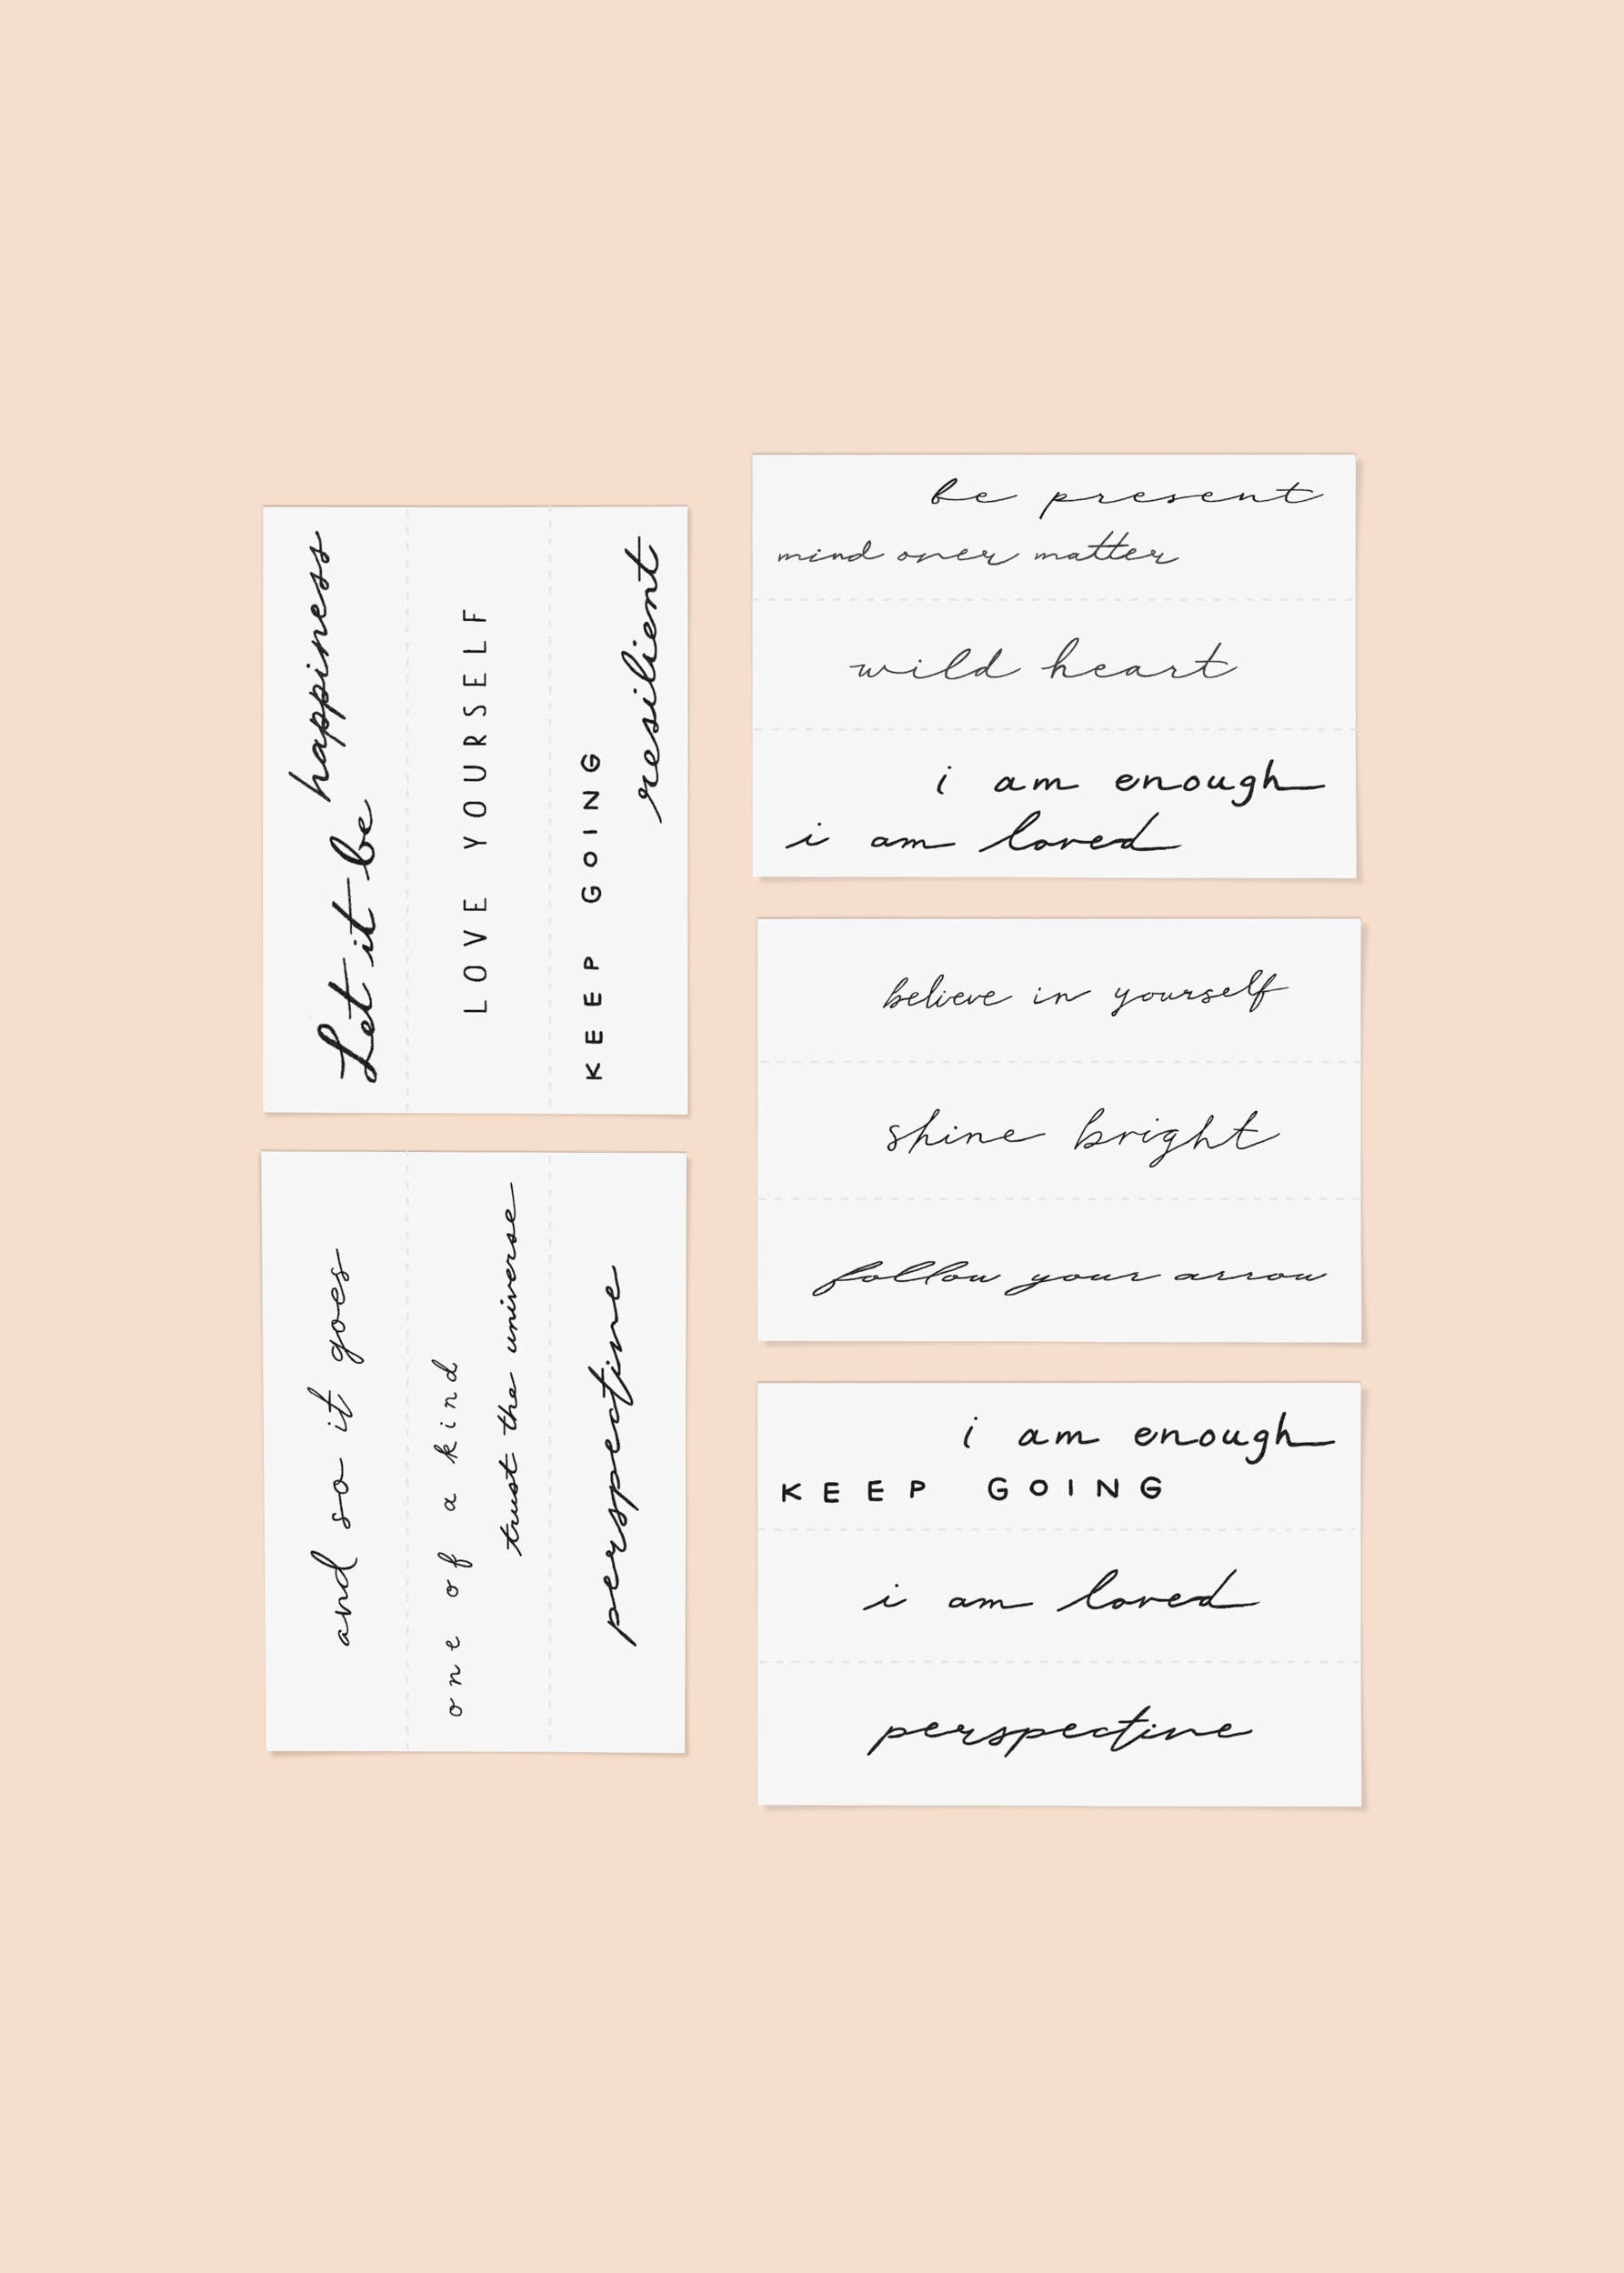 Let it be
happiness
LOVE YOURSELF
KEEP GOING
resilient
and so it goes
one of a kind
trust the universe
perspective
be present
mind over matter
wild heart
i am enough
i am loved
believe in yourself
shine bright
follow your arrow
i am enough
KEEP GOING
i am loved
perspective